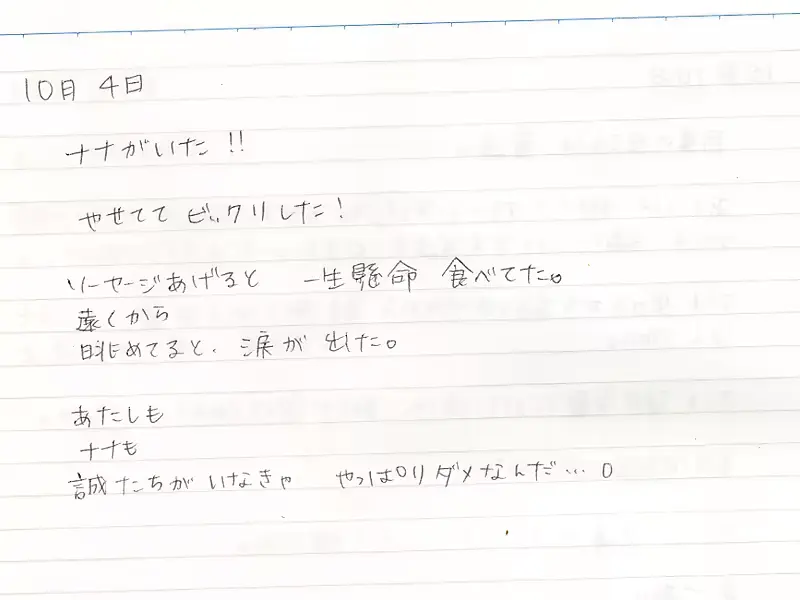 10月 4日
ナナがいた!!
やせてて ビックリした!
ソーセージあげると 一生懸命 食べてた。
遠くから
眺めてると、涙が 出た。
あたしも
ナナも
誠たちが いなきゃ やっぱりダメなんだ…。